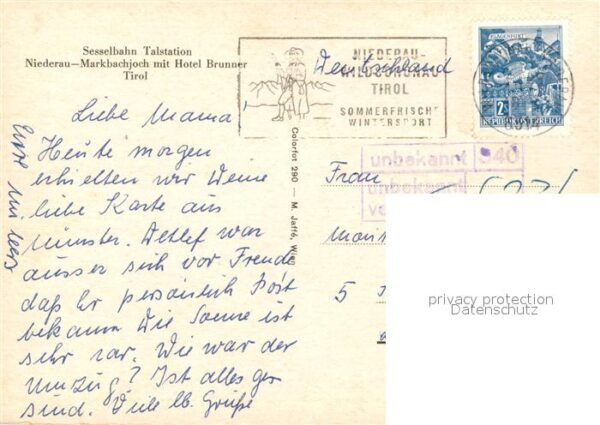 Sesselbahn Talstation
Niederau—Markbachjoch mit Hotel Brunner
Tirol
NIEDERAU-
WILDSCHÖNAU
TIROL
SOMMERFRISCHE
WINTERSPORT
Deutschland
KLAGENFURT
2
REPUBLIK ÖSTERREICH
Liebe Mama,
Heute morgen
erhielten wir Deine
liebe Karte aus
Münster. Detlef war
ausser sich vor Freude
daß Er persönlich Post
bekam. Die Sonne ist
sehr rar. Wie war der
Umzug? Ist alles ge-
sund. Viele lb. Grüße
Colorfot 290 — M. Jaffé, Wien
unbekannt 540
unbekannt
Frau
5
privacy protection
Datenschutz